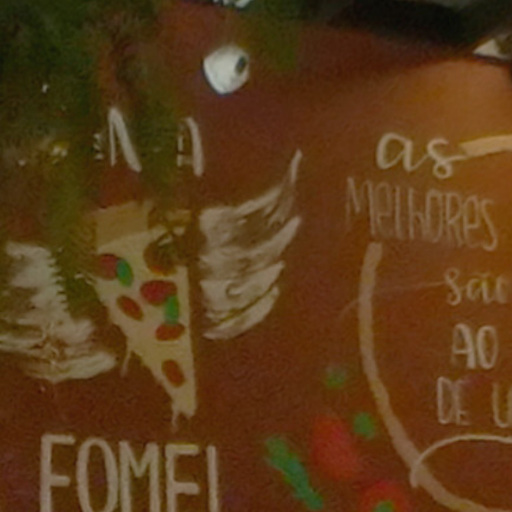 FOME!
as
MELHORES
são
AO
DE